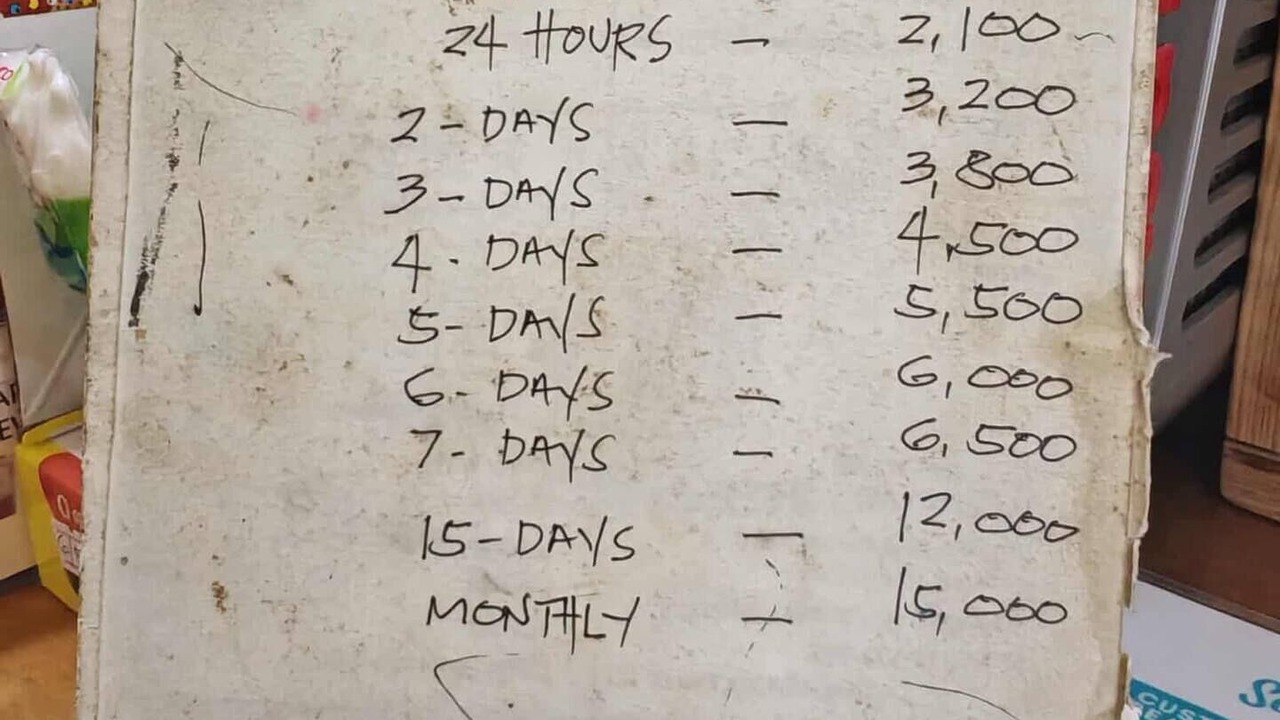 24 HOURS - 2,100
2-DAYS - 3,200
3-DAYS - 3,800
4. DAYS - 4,500
5-DAYS - 5,500
6-DAYS - 6,000
7-DAYS - 6,500
15-DAYS - 12,000
MONTHLY - 15,000
CUS